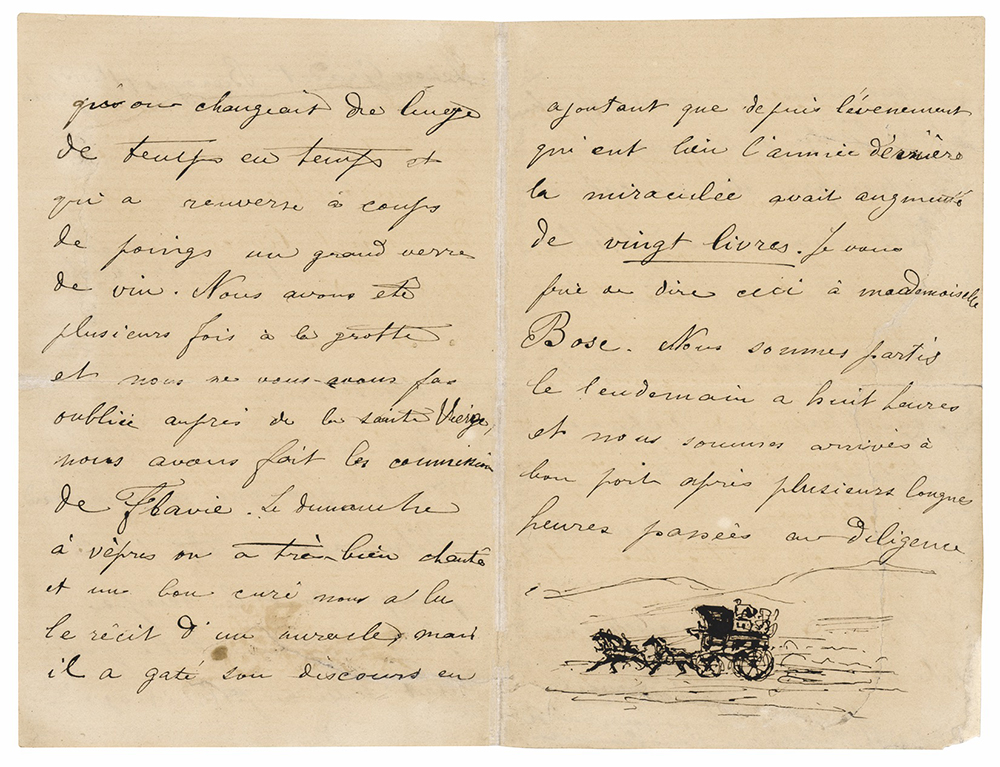 qu'on changeait de linge
de temps en temps et
qui a renversé à coups
de poings un grand verre
de vin. Nous avons été
plusieurs fois à la grotte
et nous ne vous avons pas
oubliée auprès de la sainte Vierge,
nous avons fait les commission
de Flavie. Le dimanche
à vèpres on a très bien chanté
et un bon curé nous a lu
le récit d'un miracle, mais
il a gaté son discours en
ajoutant que depuis l'évenement
qui eut lieu l'année dérnière
la miraculée avait augmenté
de vingt livres. Je vous
prie de dire ceci à mademoiselle
Bose. Nous sommes partis
le lendemain a huit heures
et nous sommes arrivés à
bon port après plusieurs longues
heures passées en diligence